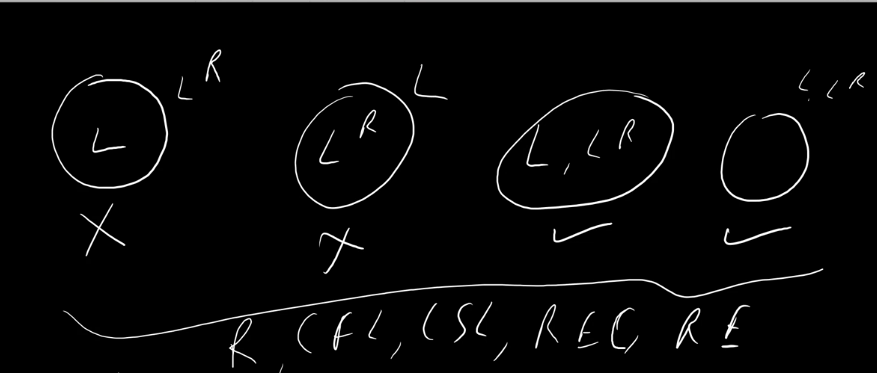 L L^R
L^R L
L, L^R
L, L^R
X X ✓ ✓
R, CFL, CSL, REC, RE